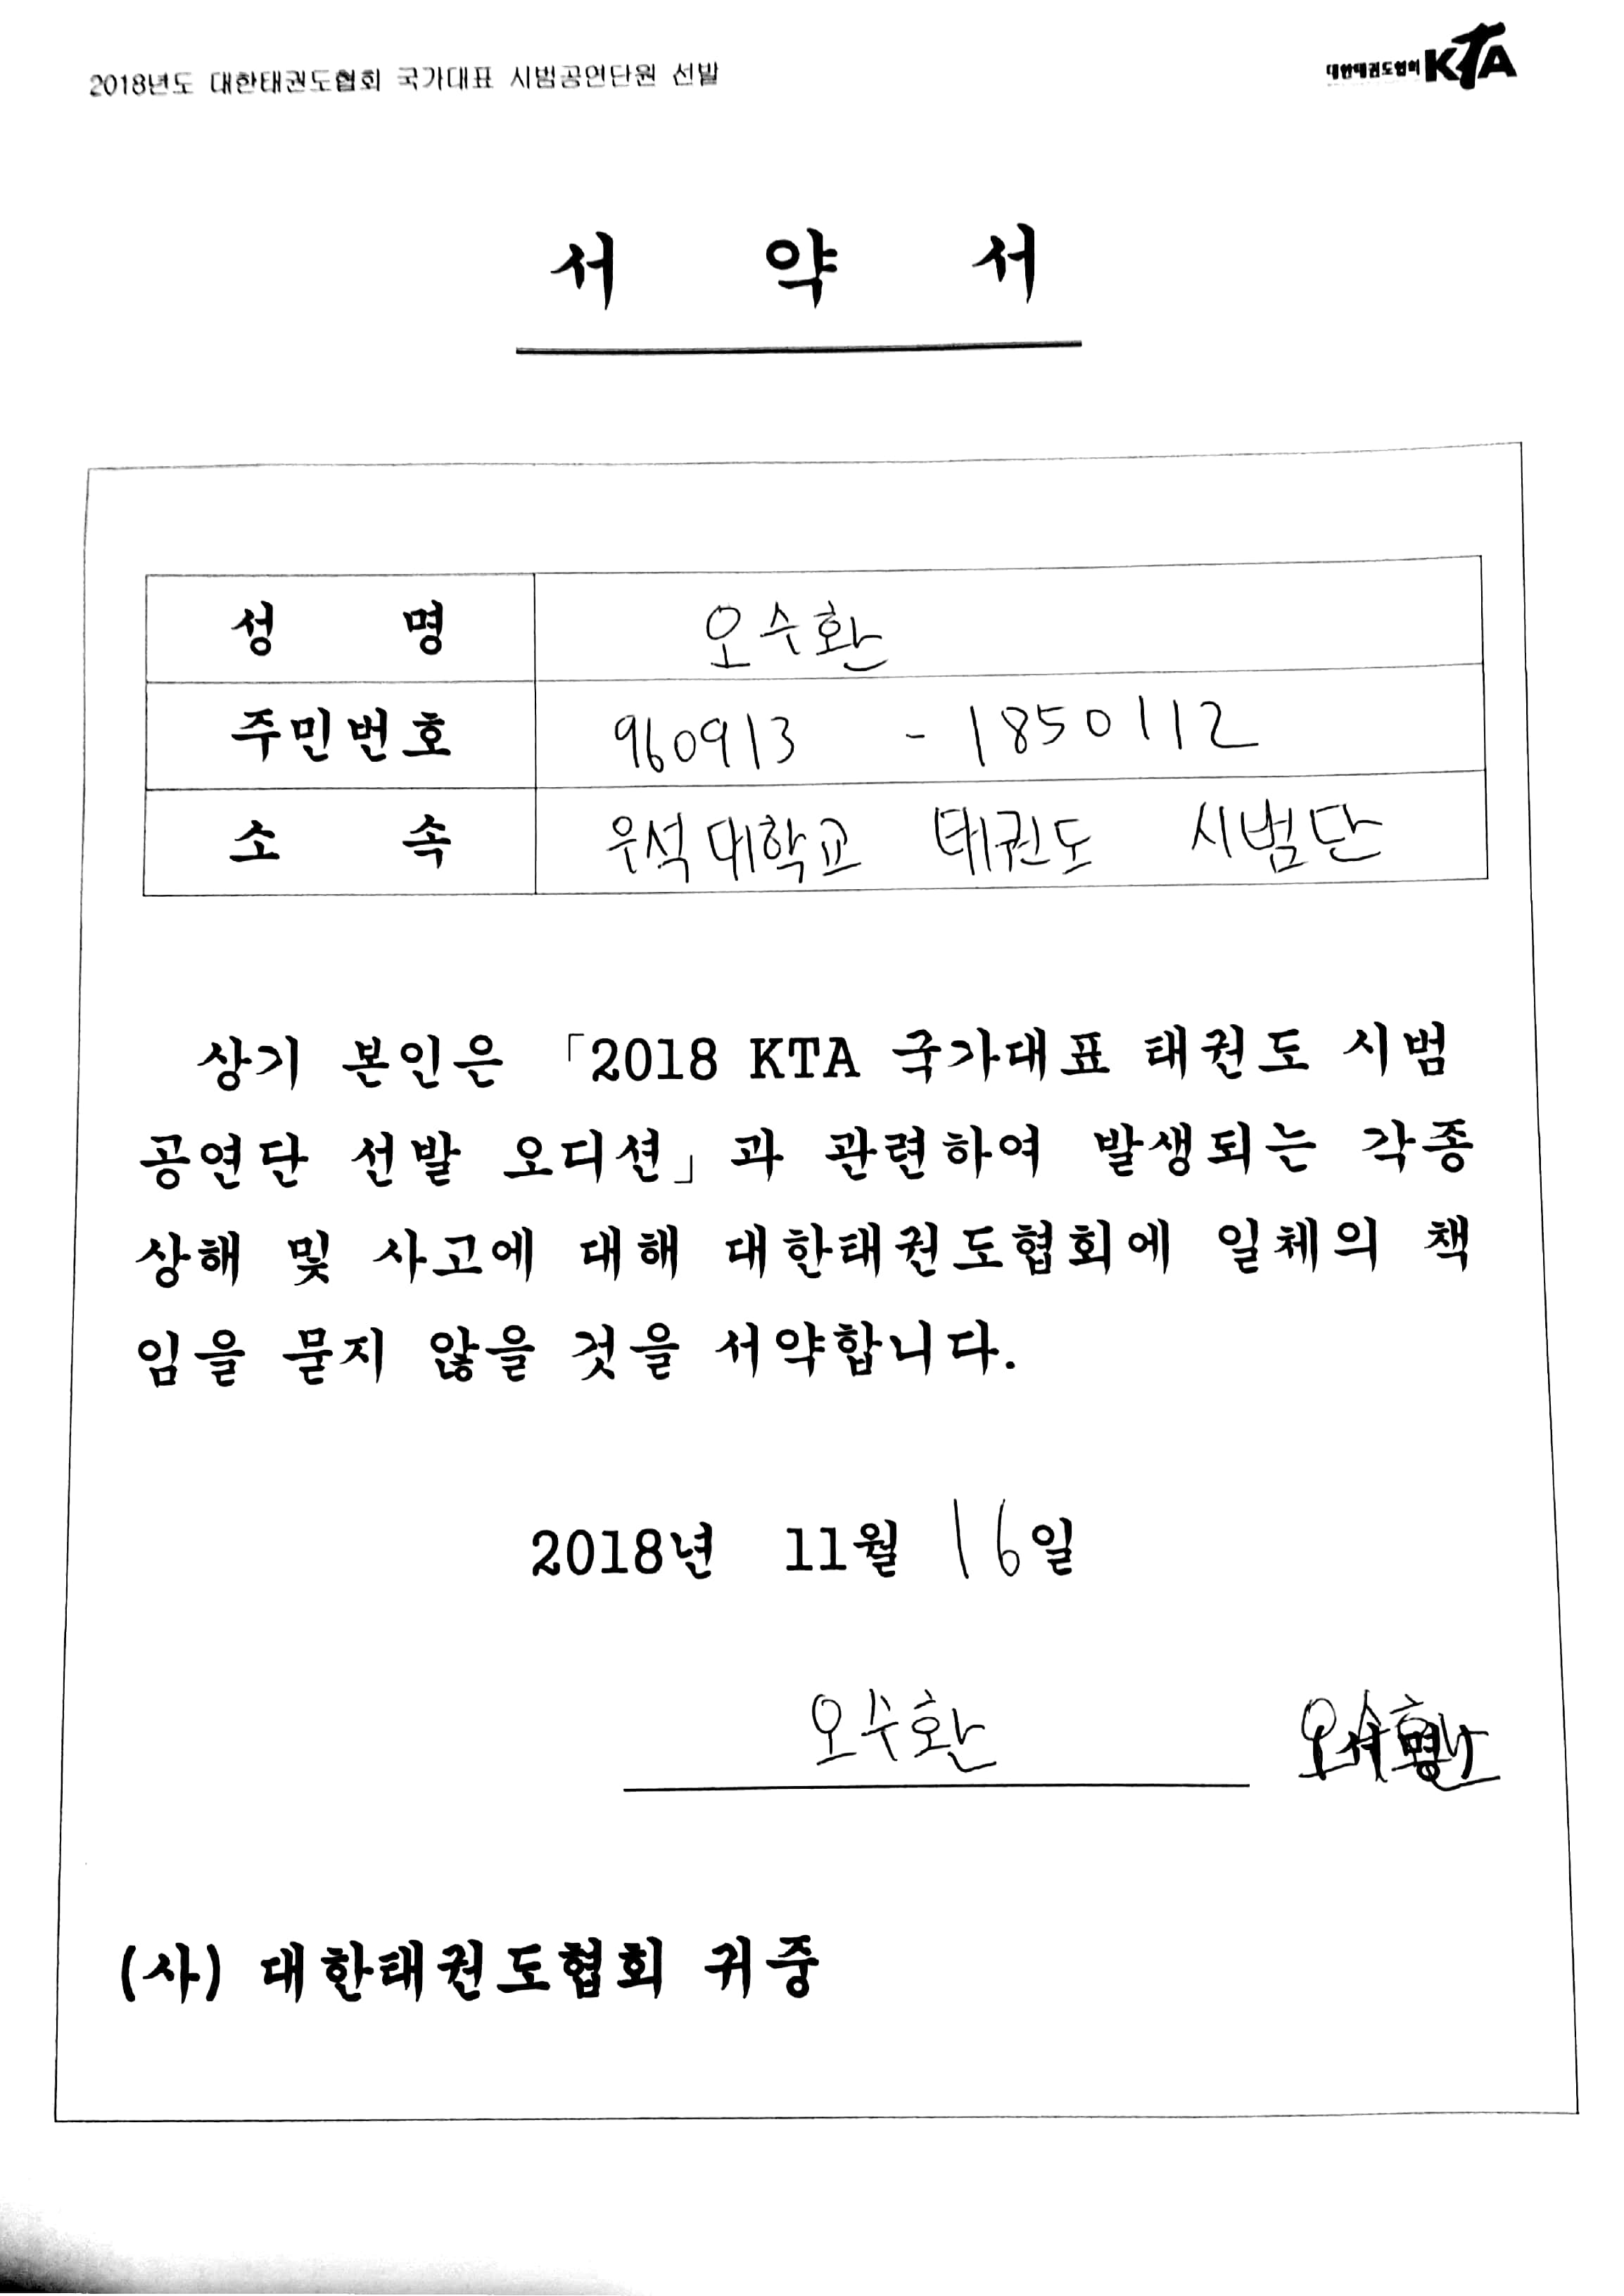 2018년도 대한태권도협회 국가대표 시범공연단원 선발
대한태권도협회 KTA
서 약 서
성 명 오수환
주민번호 960913 - 1850112
소 속 우석대학교 태권도 시범단
상기 본인은 「2018 KTA 국가대표 태권도 시범
공연단 선발 오디션」과 관련하여 발생되는 각종
상해 및 사고에 대해 대한태권도협회에 일체의 책
임을 묻지 않을 것을 서약합니다.
2018년 11월 16일
오수환 오수환
(사) 대한태권도협회 귀중